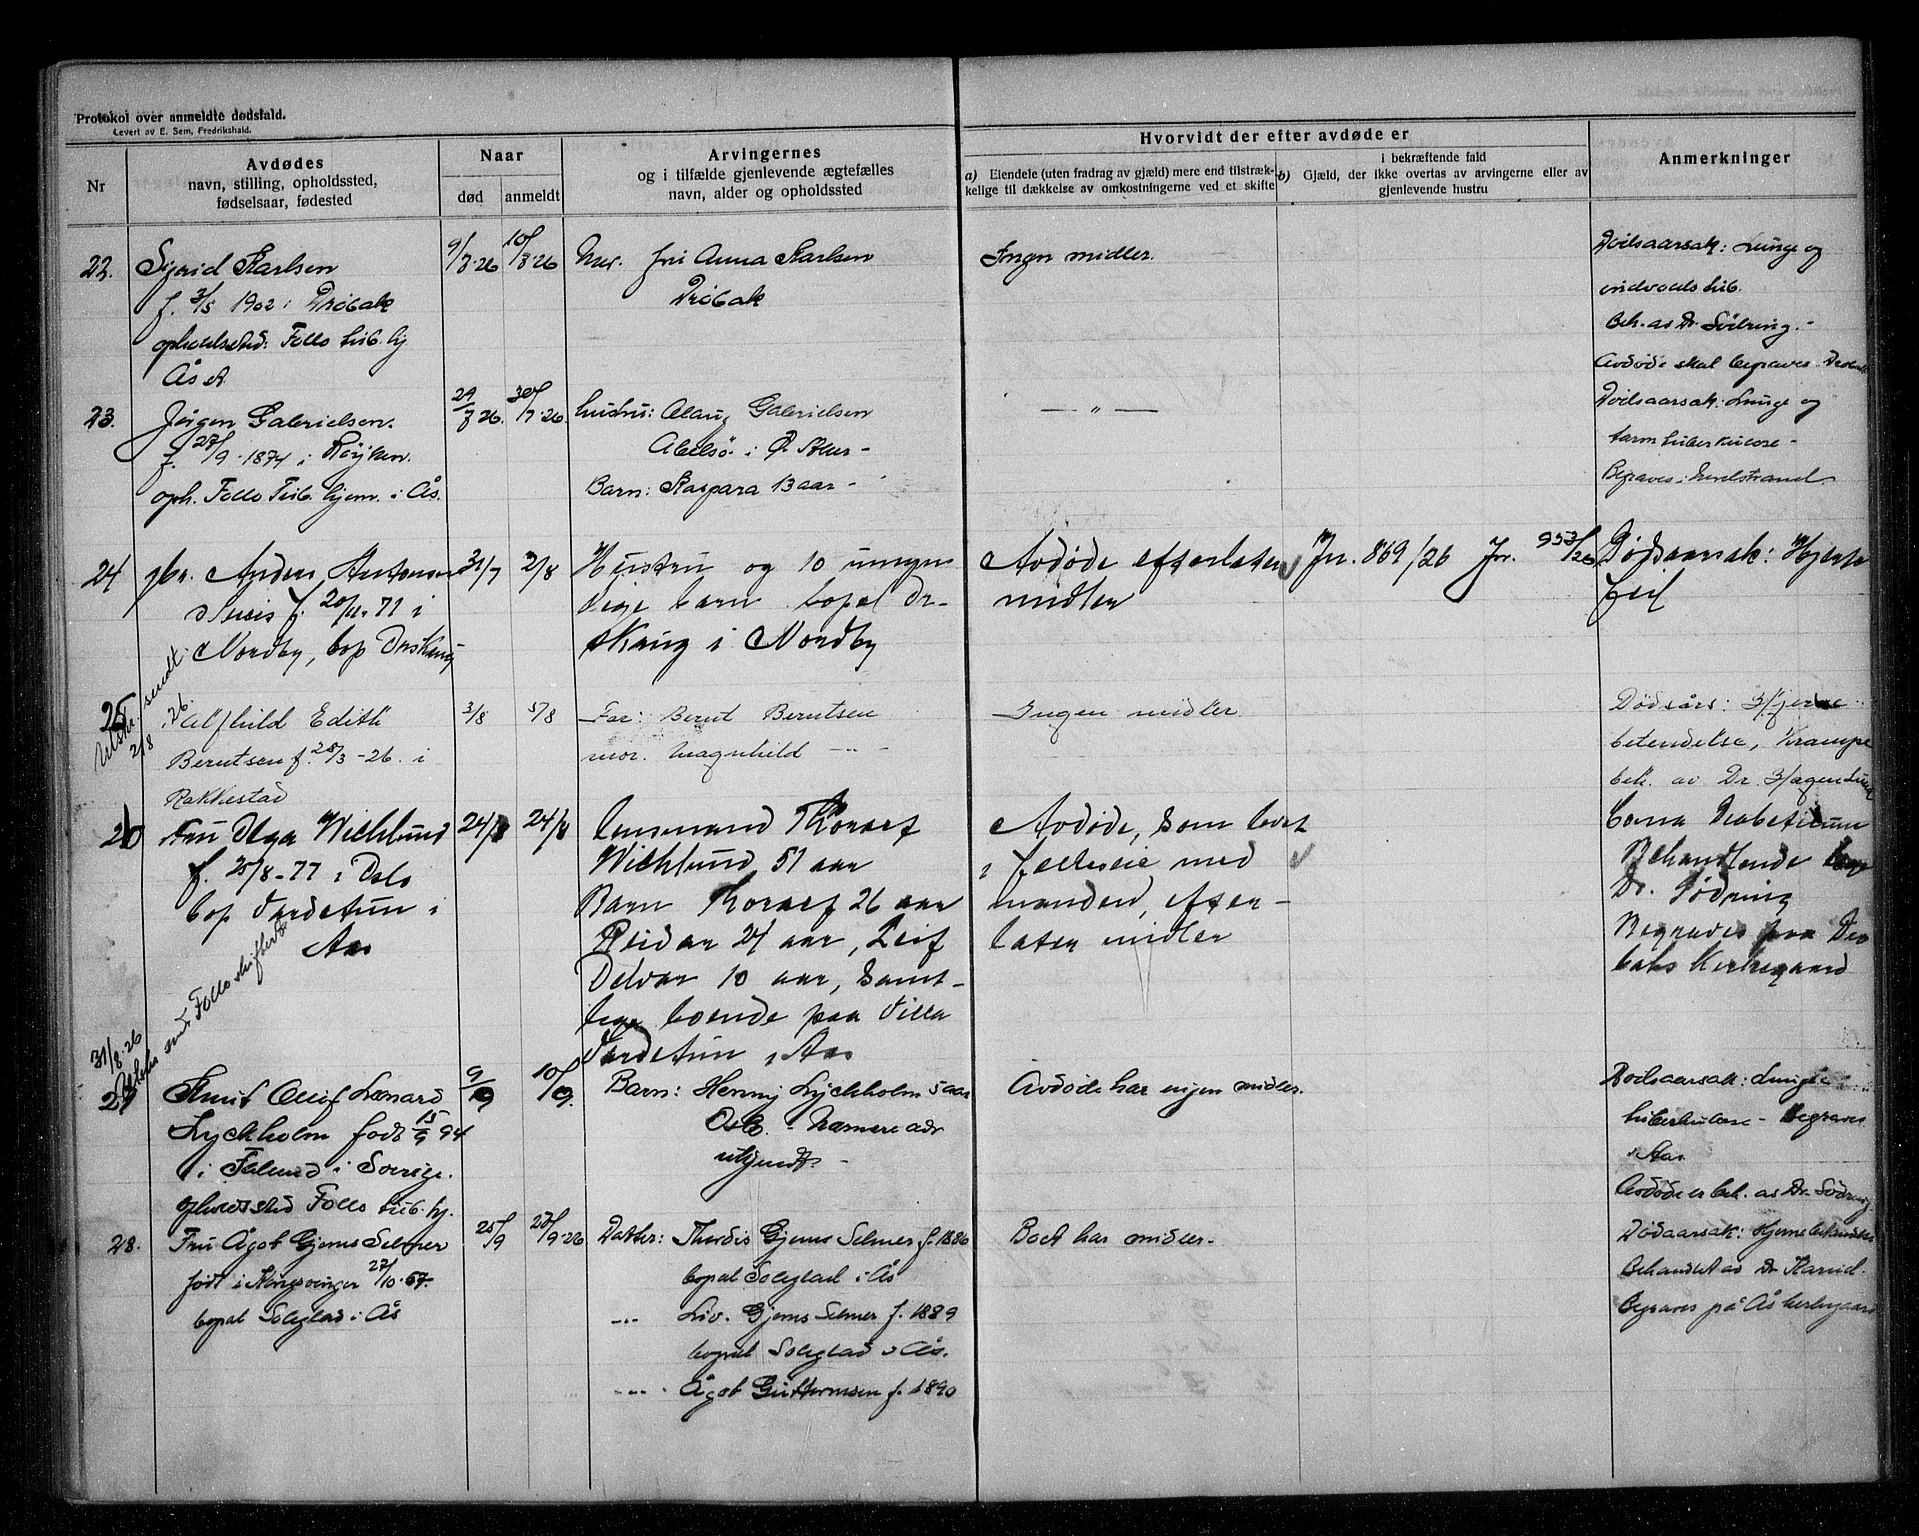 Protokol over anmeldte dødsfald.
Levert av E. Sem, Fredrikshald.
Nr
Avdødes
navn, stilling, opholdssted,
fødselsaar, fødested
Naar
død
anmeldt
Arvingernes
og i tilfælde gjenlevende ægtefælles
navn, alder og opholdssted
Hvorvidt der efter avdøde er
a) Eiendele (uten fradrag av gjæld) mere end tilstræk-
kelige til dækkelse av omkostningerne ved et skifte
i bekræftende fald
b) Gjæld, der ikke overtas av arvingerne eller av
gjenlevende hustru
Anmerkninger
22.
Sigrid Karlsen
f. 3/5 1902 i Drøbak
opholdssted: Follo tub. hj
Ås
9/7-26
10/7-26
Mor. fru Anna Karlsen
Drøbak
Ingen midler.
Dødsaarsak: Lunge og
tub.
Beh. av Dr. Södring.-
Avdøde skal begraves
23.
Jørgen Gabrielsen.
f. 27/9-1874 i Røyken.
oph. Follo Tub. hjem. i Ås.
29/7 26.
30/7-26
hustru: Alaug Gabrielsen
i
Barn: Kaspara 13 aar -
— " —
Dødsaarsak: Lunge og
tarm tuberkulose -
Begraves i
24
gbr. Anders Antonsen
f. 20/11-71 i
Nordby, bop
31/7
2/8
Hustru og 10 umyn
dige barn bopel Dr-
skaug i Nordby
Avdøde efterlater
midler
Jr. 869/26 Jr. 953/26
Dødsaarsak: Hjerte
feil
Utskr. sendt
2/8 26.
25
Alfhild Edith
Berntsen f. 28/3-26. i
Rakkestad
3/8
5/8
Far: Bernt Berntsen
mor. Magnhild -"-
Ingen midler
Dødsårs: Hjerne
betendelse, Krampe
beh. av Dr. Hagen Lund
26
Fru Olga Wichlund
f. 25/8-77 i Oslo
bop Vardetun i
Aas
24/8
24/8
Lensmand Thoralf
Wichlund, 51 aar
Barn Thoralf 26 aar
Reidar 24 aar, Leif
Delvar 10 aar, samt-
lige boende paa Villa
Vardetun i Aas
Avdøde, som levet
i fælleseie med
manden, efter-
later midler
Coma Diabeticum
Behandlende læge
Dr. Södring
Begraves paa Drø
baks Kirkegaard
31/8-26
send Follo skifterett
27
Knut Oluf Lenard
Lyckholm født 15/9 94
i Falund i Sverige.
opholdssted Follo tub. hj.
9/9
10/9.
Barn: Henny Lyckholm 5 aar
Oslo. - Nærmere adr
ukjendt. -
Avdøde har ingen midler.
Dødsaarsak: Lunge
tuberkulose - begraves
i Aas
Avdøde er beh. av Dr. Södring
28.
Fru Ågot Gjems Selmer
født i Kongsvinger 27/10-57
bopæl Solglad i Ås
25/9
27/9-26
Datter: Thordis Gjems Selmer f. 1886
bopæl Solglad i Ås
-"- Liv. Gjems Selmer f. 1889
bopæl Solglad i Ås.
-"- Ågot Guttormsen f. 1890
Boet har midler.
Dødsaarsak:
Behandlet av Dr.
Begraves på Ås kirkegaard